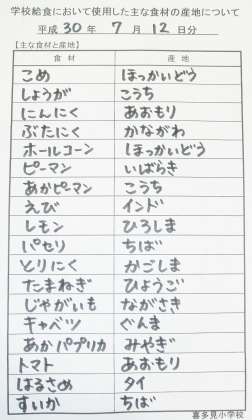 学校給食において使用した主な食材の産地について
平成 30 年 7 月 12 日分
【主な食材と産地】
食材 産地
こめ ほっかいどう
しょうが こうち
にんにく あおもり
ぶたにく かながわ
ホールコーン ほっかいどう
ピーマン いばらき
あかピーマン こうち
えび インド
レモン ひろしま
パセリ ちば
とりにく かごしま
たまねぎ ひょうご
じゃがいも ながさき
キャベツ ぐんま
あかパプリカ みやぎ
トマト あおもり
はるさめ タイ
すいか ちば
喜多見小学校